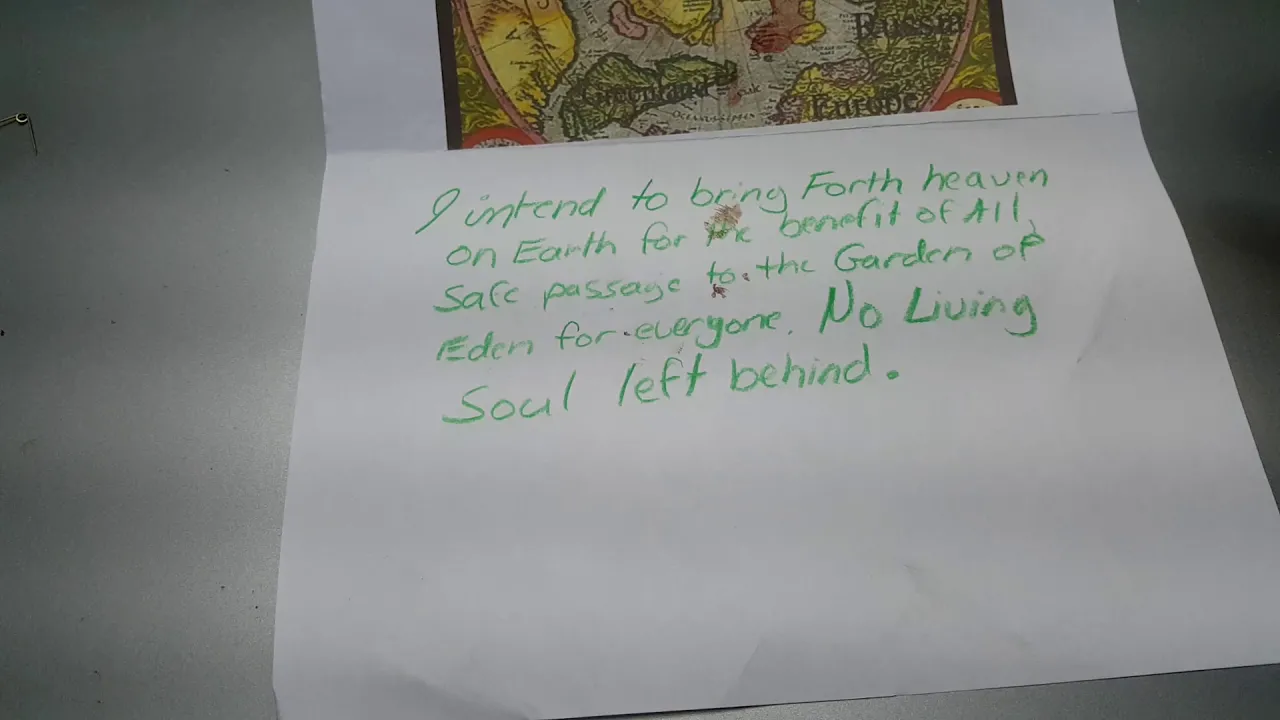 Russia
Greenland
Europe
OCEANUS
I intend to bring Forth heaven
on Earth for the benefit of All,
safe passage to the Garden of
Eden for everyone. No Living
Soul left behind.